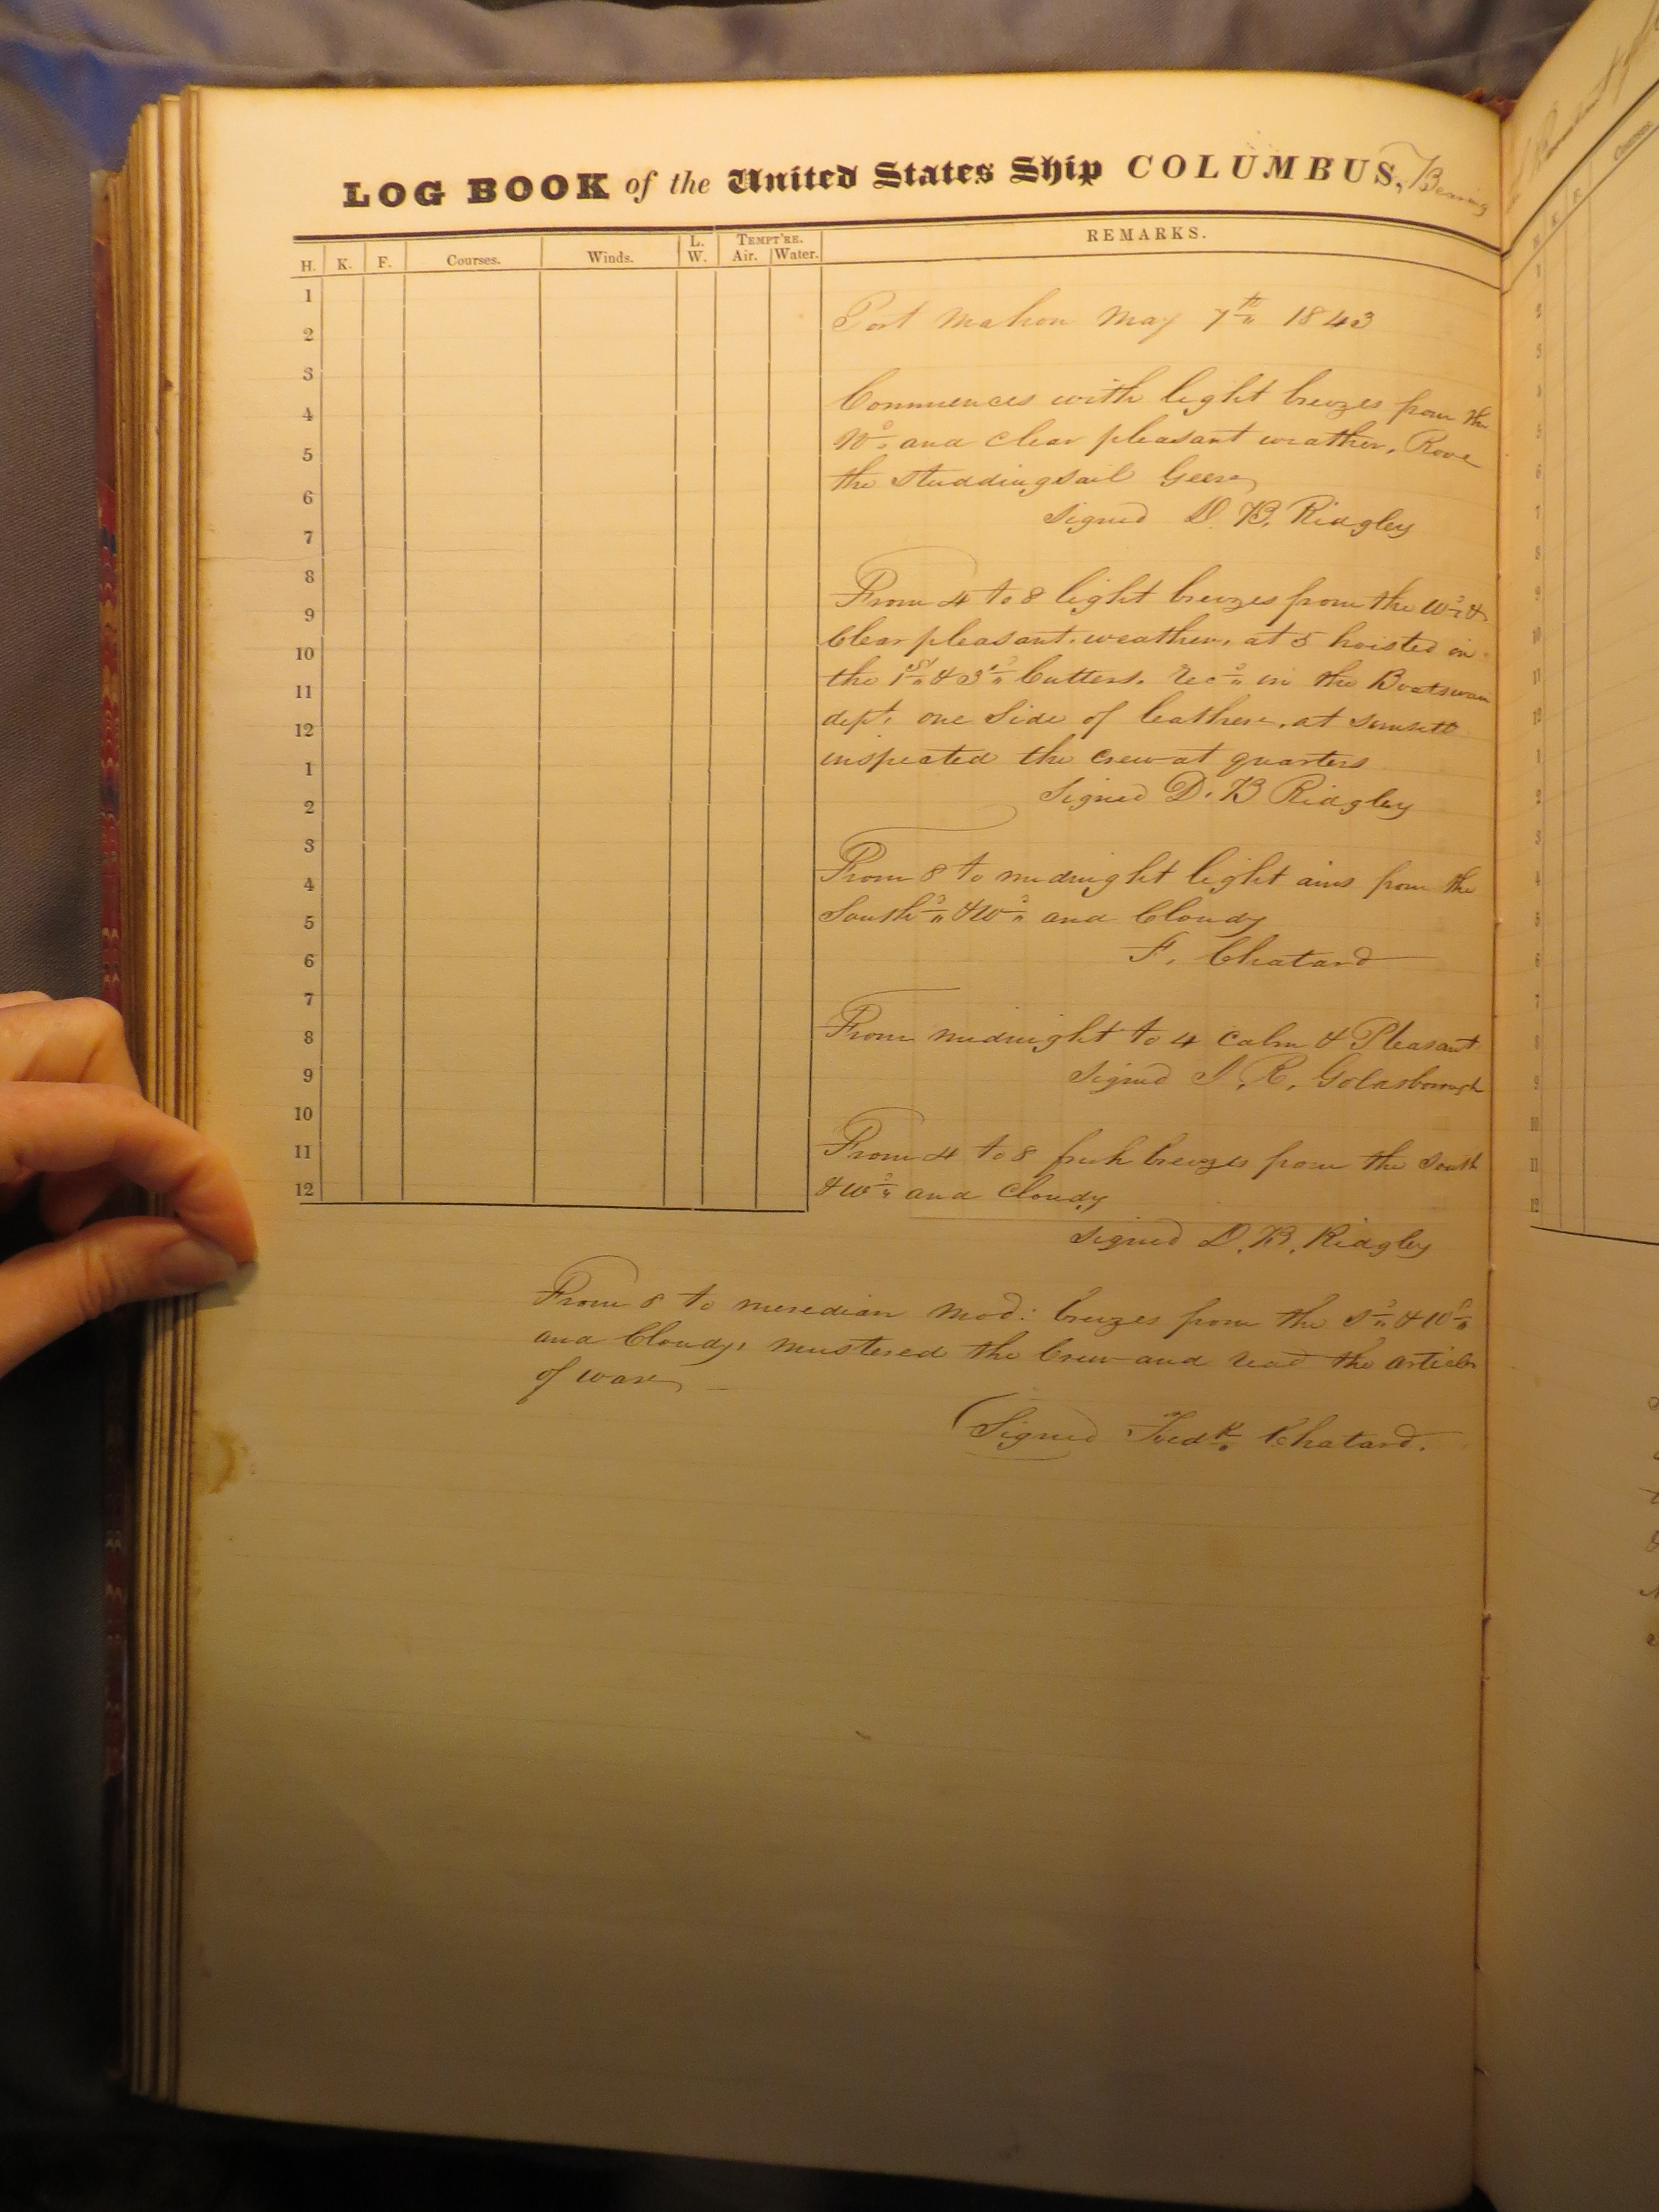 LOG BOOK of the United States Ship COLUMBUS, Bearing
H. K. F. Courses. Winds. L. W. TEMPT'RE. Air. Water. REMARKS.
1
2
3
4
5
6
7
8
9
10
11
12
1
2
3
4
5
6
7
8
9
10
11
12
Port Mahon May 7th 1843
Commences with light breezes from the
Wd and clear pleasant weather, Rove
the studdingsail Geere
Signed D. B. Ridgley
From 4 to 8 light breezes from the Wd &
Clear pleasant weather, at 5 hoisted in
the 1st & 3d Cutters. Recd in the Boatswain
dept. one Side of leather, at sunsett
inspected the crew at quarters
Signed D. B Ridgley
From 8 to midnight light airs from the
Southd & Wd and Cloudy
F. Chatard
From midnight to 4 Calm & Pleasant
Signed J. R. Goldsborough
From 4 to 8 fresh breezes from the South
& Wd and Cloudy
Signed D. B. Ridgley
From 8 to meredian Mod: breezes from the Sd & Wd
and Cloudy, mustered the Crew and read the articles
of war
(Signed Fredk Chatard.